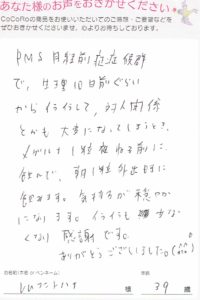 あなた様のお声をおきかせください
CoCoRoの商品をお使いいただいてのご感想・ご要望などを
ぜひおきかせくださいませ。心よりお待ちしております。
PMS 月経前症候群
で、生理10日前ぐらい
からイライラして、対人関係
とかも大変になってしまうとき、
メグルナ1粒寝る前に
飲んで、朝1粒外出時に
飲みます。気持ちが穏やか
になります。イライラも少な
くなり感謝です。
ありがとうございました。
お名前(本名 or ペンネーム)
様
年齢
39 歳